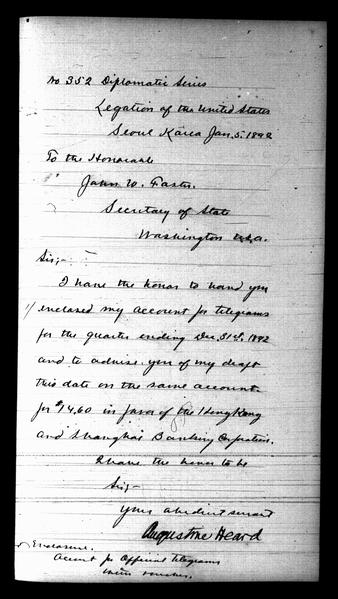 No 352 Diplomatic Series
Legation of the United States
Seoul Korea Jan. 5. 1892
To the Honorable
John W. Foster.
Secretary of State
Washington U.S.A.
Sir;-
I have the honor to hand you
1/ enclosed my account for telegrams
for the quarter ending Dec. 31st, 1892
and to advise you of my draft
this date on the same account
for $14.60 in favor of the Hong Kong
and Shanghai Banking Corporation.
I have the honor to be
Sir;-
Your obedient servant
Augustine Heard
Enclosure.
Account for Official telegrams
with voucher.